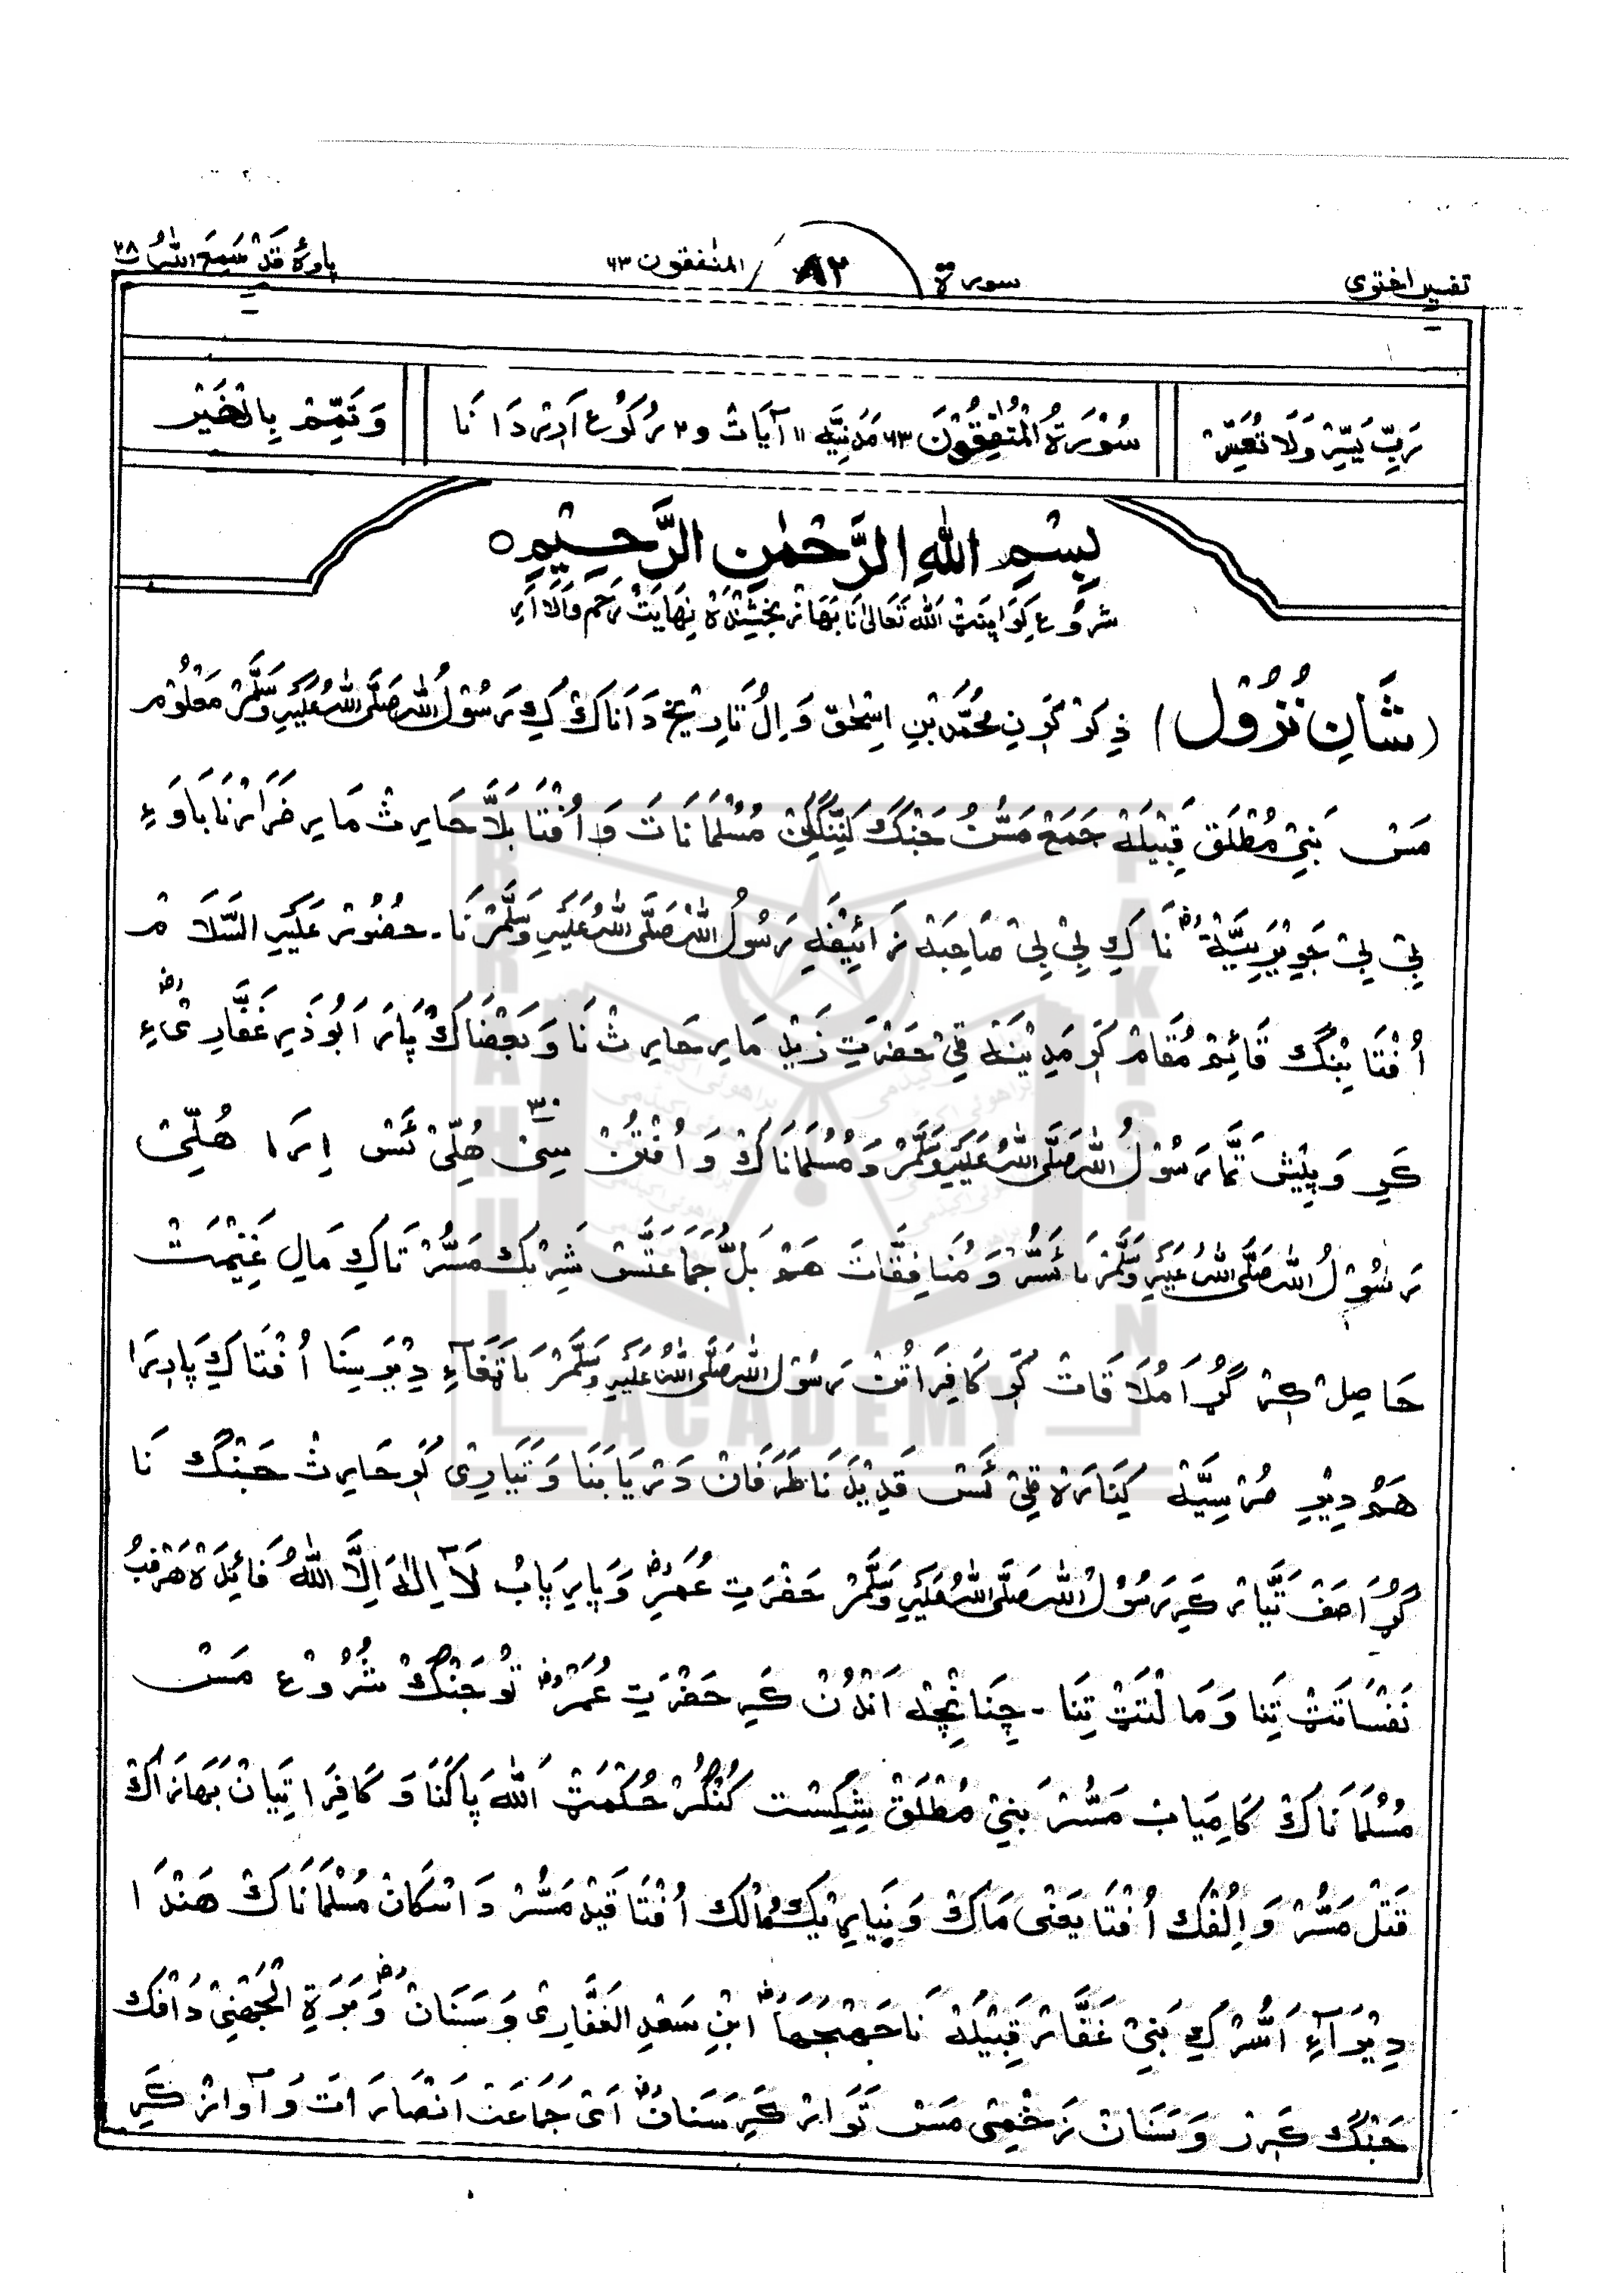 تفسیر اختری
سورۃ ۸۲ المنٰفقون ۶۳
پارۂ قَدْ سَمِعَ اللہُ ۲۸
رَبِّ یَسِّرْ وَلَا تُعَسِّرْ
سُوْرَۃُ الْمُنٰفِقُوْنَ ۶۳ مَدَنِیَّہ ۱۱ آیَاتْ و ۲ رُکُوْع اَرِدَا نَا
وَ تَمِّمْ بِالْخَیْر
بِسْمِ اللّٰهِ الرَّحْمٰنِ الرَّحِیْمِ ○
شروع کَوَا پِنَٹْ اَللہ تَعَالٰی نَا بَھَازْ بَخْشِنْدَہْ نِھَایَتْ رَحَمْ وَالَا اَرِ
(شَانِ نُزُوْل) ذِکَرْ کَرٖنِ مُحَمَّدْ بْنِ اِسْحٰق وَ اِلْ تَارِیْخ دَانَاکْ کِ رَسُوْلُ اللہ صَلَّی اللہُ عَلَیْہِ وَسَلَّمْ مَعْلُوْم
مَسْ بَنِیْ مُطْلَق قَبِیْلَہْ جَمَعْ مَسُّنُ جَنْگ کَنِنْگِکِنْ مُسْلمَانَاتَ وَ اُفْتَا بَلَّا حَارِثْ مَارِ ضَرَارْنَا بَاوَءِ
بِیْ بِیْ جَوِیْرِیَّۃْ رض نَا کِ بِیْ بِیْ صَاحِبَہ زَائِیْفَہِ رَسُوْلُ اللہْ صَلَّی اللہُ عَلَیْہِ وَسَلَّمْ نَا۔ حضُوْر عَلَیْہِ السَّلَامْ
اُفْتَا پِنْگ قَائِمْ مُقَامْ کَرٖ مَدِیْنَہ ٹِیْ حَضْرَتِ زَیْد مَارِ حَارِثْ نَا وَ بَعْضَاکْ پَارَ اَبُوْذَرِ غَفَّارِیْ رض ءِ
کَرِ وَ پِیْش تَمَّا رَسُوْلُ اللہ صَلَّی اللہُ عَلَیْہِ وَسَلَّمْ وَ مُسْلمَانَاکْ وَ اُفْتُنْ سِیْ ۳۰ ھُلِّیْ ئَسْ اِرَا ھُلِّیْ
رَسُوْلُ اللہ صَلَّی اللہُ عَلَیْہِ وَسَلَّمْ نَا ئَسُّرْ وَ مُنَافِقَاتَ ھَمْ بَلُّ جَمَاعَتَسْ شَرِیْک مَسُّرْ تَاکِ مَالِ غَنِیْمَتْ
حَاصِلْ کِرْ گُڑَا مُلَاقَاتْ کَرٖ کَافِرَاتُنْ رَسُوْلُ اللہ صَلَّی اللہُ عَلَیْہِ وَسَلَّمْ نَا تَھَفَآءِ دِیْرَسِنَا اُفْتَاکِ پَارِرَا
ھَمُ دِیْرِ مُرْسِیَّہْ کِنَارَہ ٹِیْ ئَسْ قَدِیْدَ نَا طَرَفَانْ دَرْیَابَنَا وَ تَیَّارِیْ کَرٖ حَارِثْ جَنْگ نَا
گُڑَا صَفْ تَیَّارْ کَرِ رَسُوْلُ اللہ صَلَّی اللہُ عَلَیْہِ وَسَلَّمْ حَضْرَتِ عُمَرِ رض وَ پَارِ پَابُ لَآ اِلٰہَ اِلَّا اللہُ فَائِدَہ ھَرْفِبُ
نَفْسَاتَتْ تِنَا وَ مَالْتَتْ تِنَا۔ چَنَانْچِہ اَنْدُنْ کَرِ حَضْرَتِ عُمَرْ رض تُو جَنْگْ شُرُوْع مَسْ
مُسْلمَانَاکْ کَامِیَابْ مَسُّرْ بَنِیْ مُطْلَقْ شِکِسْت کُنْگُرْ حُکْمَتْ اَللہ پَاکَنَا وَ کَافِرَاتِیَانْ بَھَازَاکْ
قَتْل مَسُّرْ وَ اِلْفَک اُفْتَا یَعْنِیْ مَاکْ وَ نِیَارِیْک وَ مَالْک اُفْتَا قَیْدْ مَسُّرْ دَاسْکَانْ مُسْلمَانَاکْ ھَنْدَا
دِیْرَآءِ اَسُّرْ کِ بَنِیْ غَفَّارْ قَبِیْلَہْ نَا جَھْجَھَاہ رض ابْنِ سَعْدِ الْغَفَّارِیْ وَ سَنَانْ رض وَ بَرَۃِ الْجُھْنِیْ دَافْک
جَنْگ کَرٖرْ وَ سَنَانْ زَخْمِیْ مَسْ تَوَارْ کَرِ سَنَانْ رض اَیْ جَمَاعَتْ اَنْصَارَاتْ وَ آوَازْ کَرِ